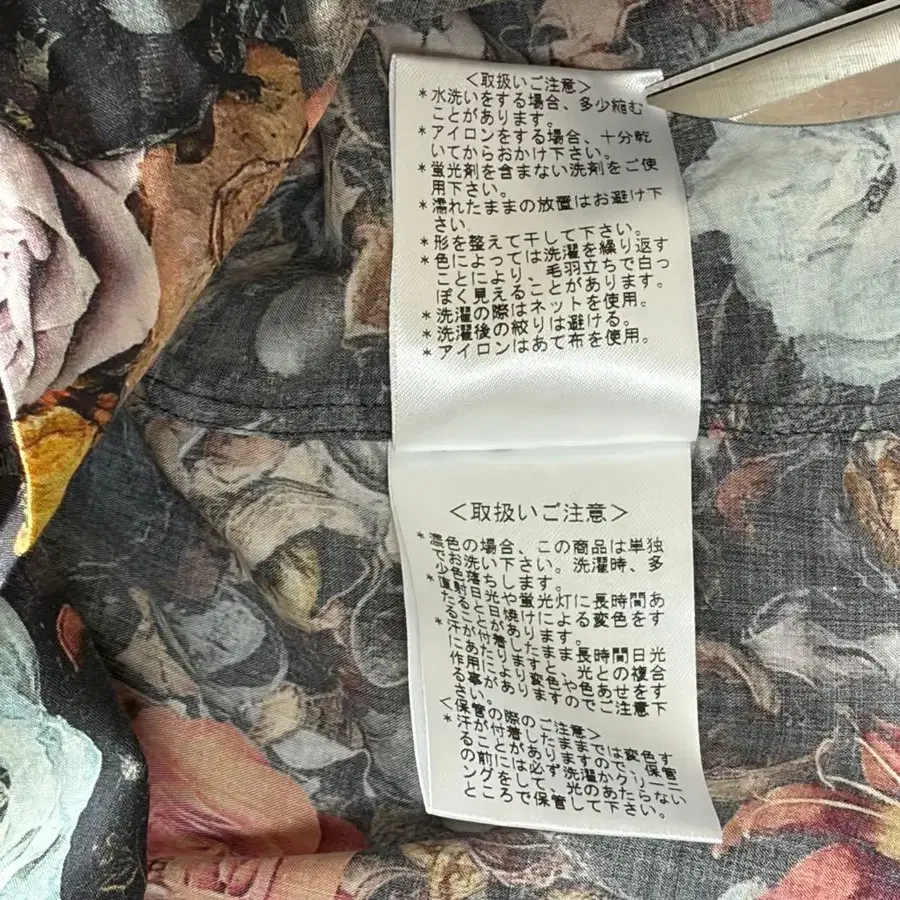 <取扱いご注意>
*水洗いをする場合、多少縮む
ことがあります。
*アイロンをする場合、十分乾
いてからおかけ下さい。
*蛍光剤を含まない洗剤をご使
用下さい。
*濡れたままの放置はお避け下
さい。
*形を整えて干して下さい。
*色によっては洗濯を繰り返す
ことにより、毛羽立ちで白っ
ぽく見えることがあります。
*洗濯の際はネットを使用。
*洗濯後の絞りは避ける。
*アイロンはあて布を使用。
<取扱いご注意>
*濃色の場合、この商品は単独
でお洗い下さい。洗濯時、多
少色落ちします。
*直射日光や蛍光灯に長時間あ
たると日焼けによる変色をす
ることがあります。
*汗が付着したまま長時間日光
にあたりますと、光との複合
作用により変色や色あせをす
る事がありますのでご注意下
さい。
<保管の際のご注意>
*汗が付着したままでは変色す
ることがありますので、保管
の前には必ず洗濯かクリーニ
ングをして、光のあたらない
ところで保管して下さい。